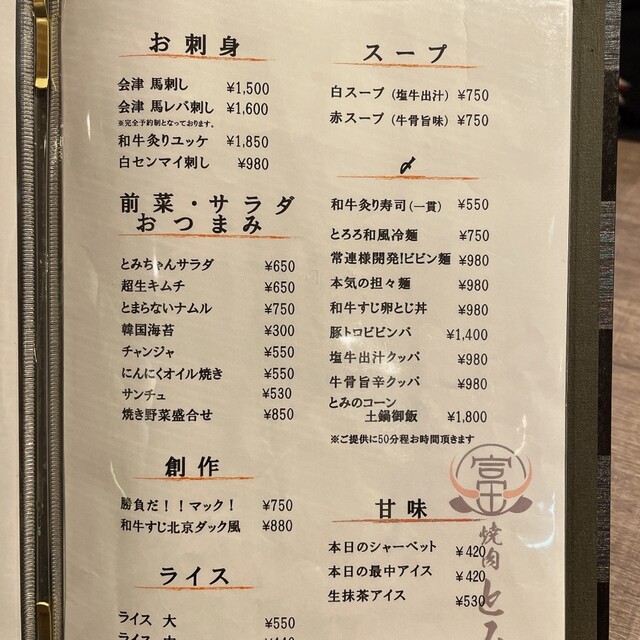 お刺身
会津 馬刺し ¥1,500
会津 馬レバ刺し ¥1,600
※完全予約制となっております。
和牛炙りユッケ ¥1,850
白センマイ刺し ¥980
前菜・サラダ
おつまみ
とみちゃんサラダ ¥650
超生キムチ ¥650
とまらないナムル ¥750
韓国海苔 ¥300
チャンジャ ¥550
にんにくオイル焼き ¥550
サンチュ ¥530
焼き野菜盛合せ ¥850
創作
勝負だ！！マック！ ¥750
和牛すじ北京ダック風 ¥880
ライス
ライス 大 ¥550
スープ
白スープ（塩牛出汁） ¥750
赤スープ（牛骨旨味） ¥750
〆
和牛炙り寿司（一貫） ¥550
とろろ和風冷麺 ¥750
常連様開発!ビビン麺 ¥980
本気の担々麺 ¥980
和牛すじ卵とじ丼 ¥980
豚トロビビンバ ¥1,400
塩牛出汁クッパ ¥980
牛骨旨辛クッパ ¥980
とみのコーン
土鍋御飯 ¥1,800
※ご提供に50分程お時間頂きます
甘味
本日のシャーベット ¥420
本日の最中アイス ¥420
生抹茶アイス ¥530
富
焼肉